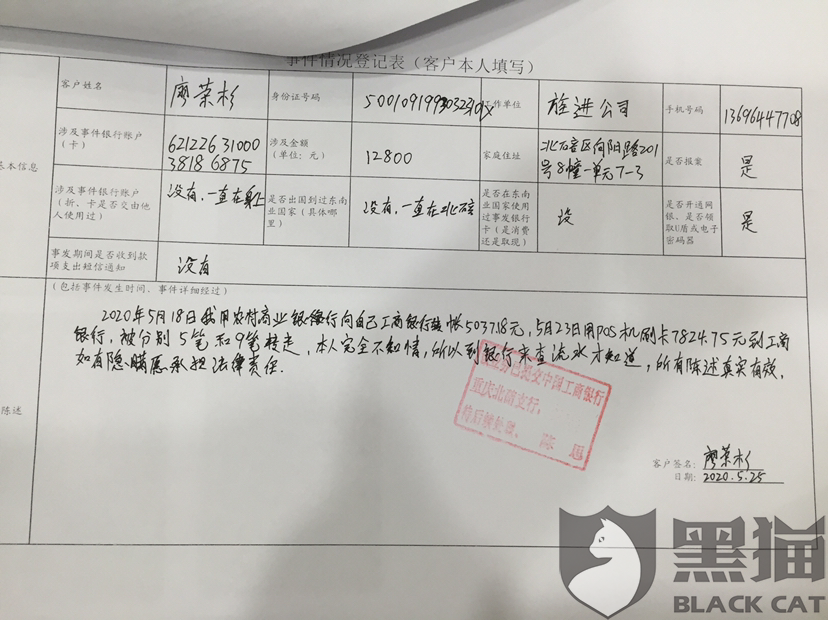 事件情况登记表（客户本人填写）
客户姓名 廖荣杉 身份证号码 工作单位 旌进公司 手机号码 13696447708
涉及事件银行账户（卡） 621226 31000 3818 6875 涉及金额（单位：元） 12800 家庭住址 北碚区向阳路201号8幢一单元7-3 是否报案 是
基本信息
涉及事件银行账户（折、卡是否交由他人使用过） 没有，一直在身上 是否出国到过东南亚国家（具体哪里） 没有，一直在北碚 是否在东南亚国家使用过事发银行卡（是消费还是取现） 没 是否开通网银、是否领取U盾或电子密码器 是
事发期间是否收到款项支出短信通知 没有
（包括事件发生时间、事件详细经过）
2020年5月18日我用农村商业银行向自己工商银行转帐5037.18元，5月23日用POS机刷卡7824.75元到工商
银行，被分别5笔和9笔转走，本人完全不知情，所以到银行来查流水才知道，所有陈述真实有效，
如有隐瞒愿承担法律责任.
陈述
已提交中国工商银行
重庆北碚支行，
待后续处理。
客户签名：廖荣杉
日期：2020.5.25
黑猫
BLACK CAT